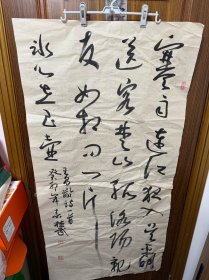 寒雨連江夜入吴平明
送客楚山孤洛陽親
友如相问一片
冰心在玉壶
王昌龄诗一首
癸卯年